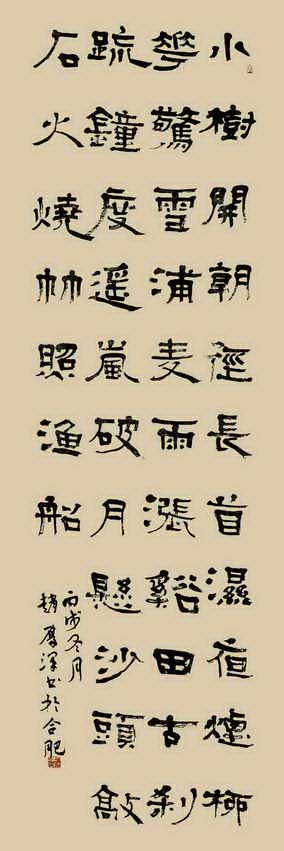 小樹開朝徑長茸濕夜煙柳
華驚雪浦麦雨漲谿田古刹
疏鐘度遥嵐破月懸沙頭敲
石火燒竹照漁船
丙戌冬月
趙澤书於合肥